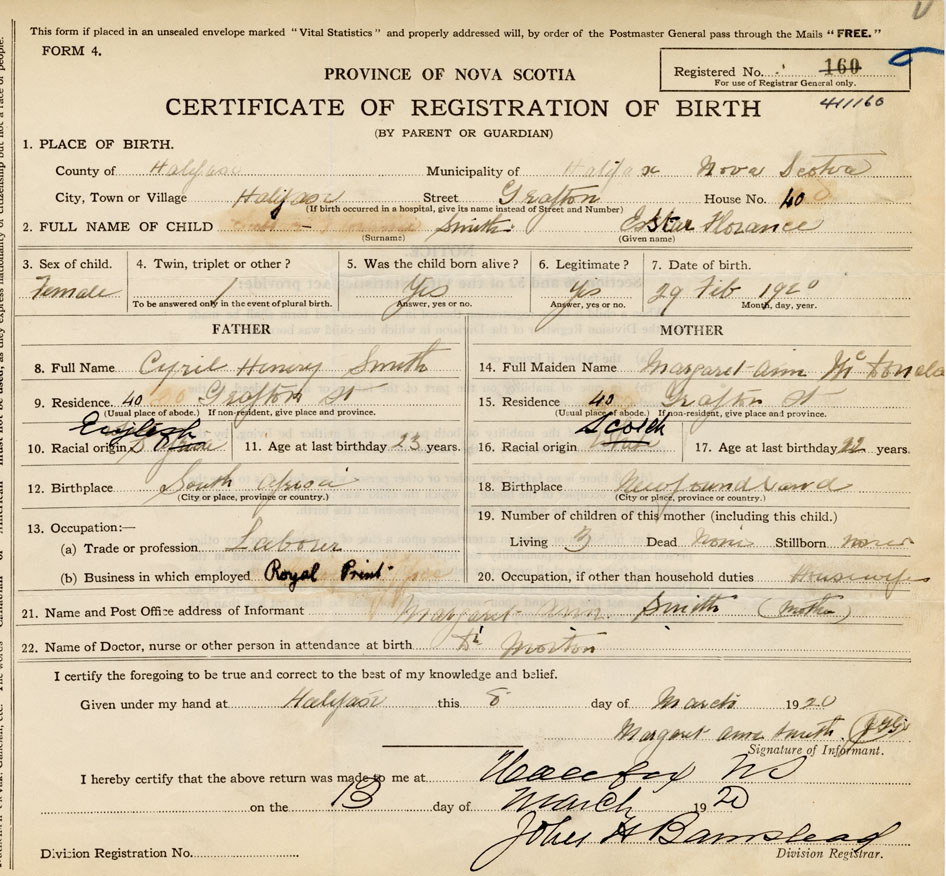 This form if placed in an unsealed envelope marked "Vital Statistics" and properly addressed will, by order of the Postmaster General pass through the Mails "FREE."
FORM 4.
PROVINCE OF NOVA SCOTIA
Registered No. 160
For use of Registrar General only.
411160
CERTIFICATE OF REGISTRATION OF BIRTH
(BY PARENT OR GUARDIAN)
1. PLACE OF BIRTH.
County of Halifax Municipality of Halifax Nova Scotia
City, Town or Village Halifax Street Grafton House No. 40
(If birth occurred in a hospital, give its name instead of Street and Number)
2. FULL NAME OF CHILD Smith Ester Florance
(Surname) (Given name)
3. Sex of child. 4. Twin, triplet or other? 5. Was the child born alive? 6. Legitimate? 7. Date of birth.
Female / Yes Yes 29 Feb 1920
To be answered only in the event of plural birth. Answer, yes or no. Answer, yes or no. Month, day, year.
FATHER MOTHER
8. Full Name Cyril Henry Smith
14. Full Maiden Name Margaret Ann Mc Donald
9. Residence. 40 Grafton St
(Usual place of abode.) If non-resident, give place and province.
15. Residence 40 Grafton St
(Usual place of abode.) If non-resident, give place and province.
English
10. Racial origin 11. Age at last birthday 23 years.
Scotch
16. Racial origin 17. Age at last birthday 22 years.
12. Birthplace South Africa
(City or place, province or country.)
18. Birthplace Newfoundland
(City or place, province or country.)
13. Occupation:—
(a) Trade or profession Labour
(b) Business in which employed Royal Print
19. Number of children of this mother (including this child.)
Living 3 Dead None Stillborn none
20. Occupation, if other than household duties Housewife
21. Name and Post Office address of Informant Margaret Ann Smith (mother)
22. Name of Doctor, nurse or other person in attendance at birth Dr Morton
I certify the foregoing to be true and correct to the best of my knowledge and belief.
Given under my hand at Halifax this 8 day of March 1920
Margaret Ann Smith
Signature of Informant.
I hereby certify that the above return was made to me at Halifax NS
on the 13 day of March 1920
John H Barnstead
Division Registration No. Division Registrar.